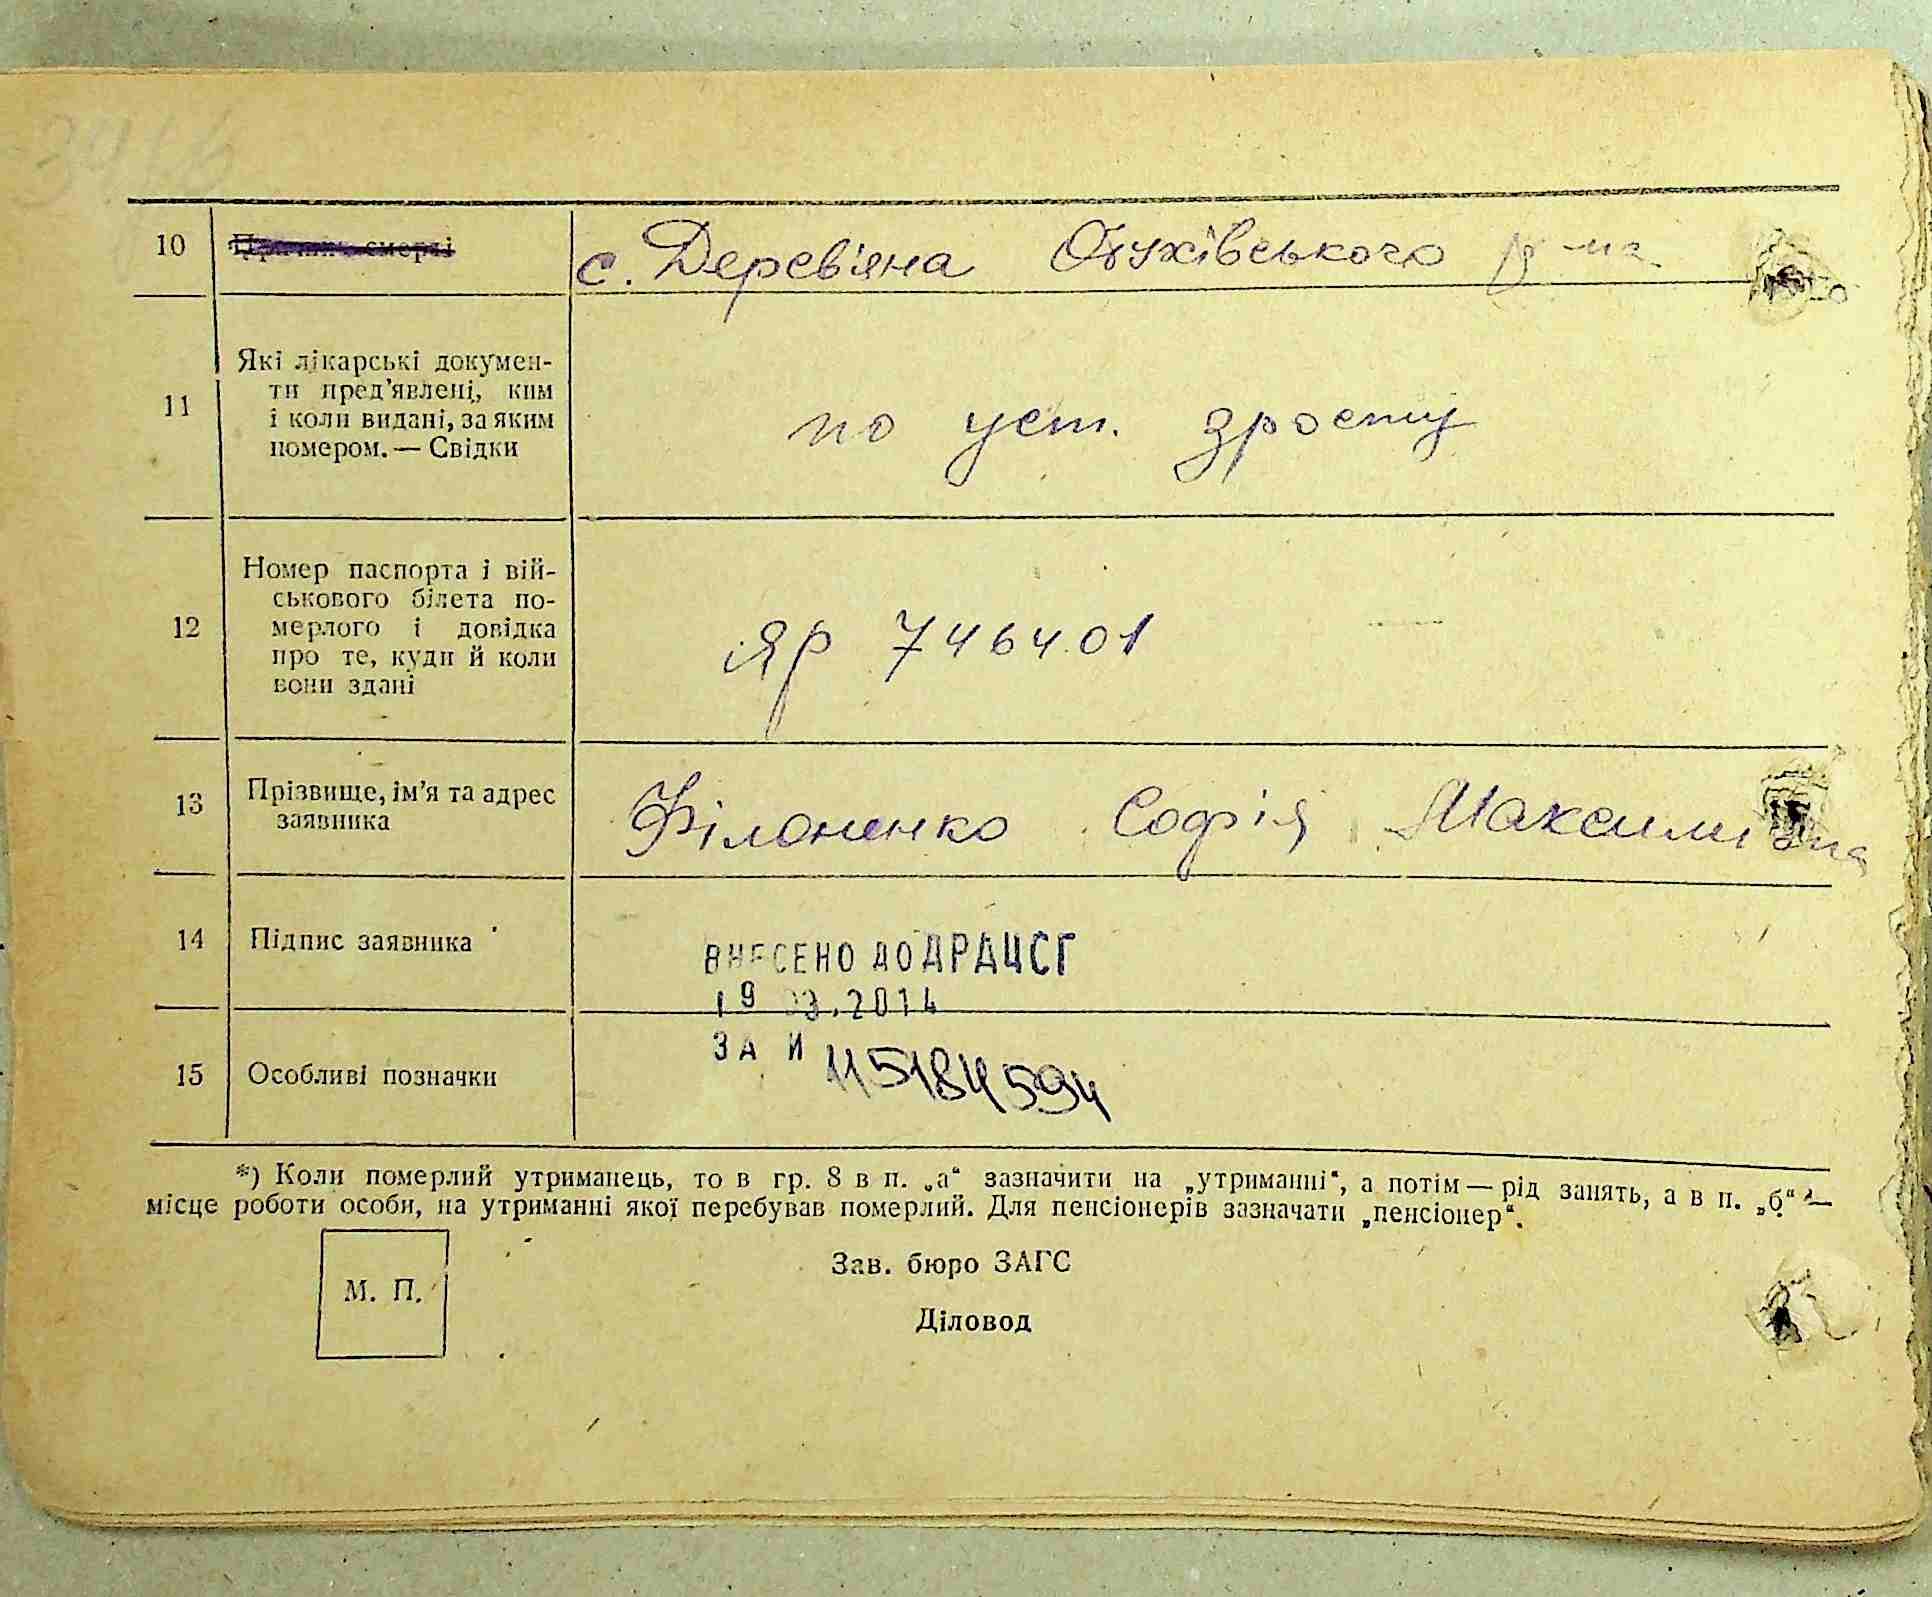 10 Причина смерті с. Дерев'яна Обухівського р-на
Які лікарські докумен-
ти пред'явлені, ким
11 і коли видані, за яким
номером. — Свідки
по уст. зросту
Номер паспорта і вій-
ськового білета по-
12 мерлого і довідка
про те, куди й коли
вони здані
ЯР 746401
13 Прізвище, ім'я та адрес
заявника
Філоненко Софія Максимівна
14 Підпис заявника
ВНЕСЕНО ДО ДРАЦСГ
19 03.2014
ЗА И 115184594
15 Особливі позначки
*) Коли померлий утриманець, то в гр. 8 в п. „а“ зазначити на „утриманні“, а потім — рід занять, а в п. „б“ —
місце роботи особи, на утриманні якої перебував померлий. Для пенсіонерів зазначати „пенсіонер“.
М. П.
Зав. бюро ЗАГС
Діловод